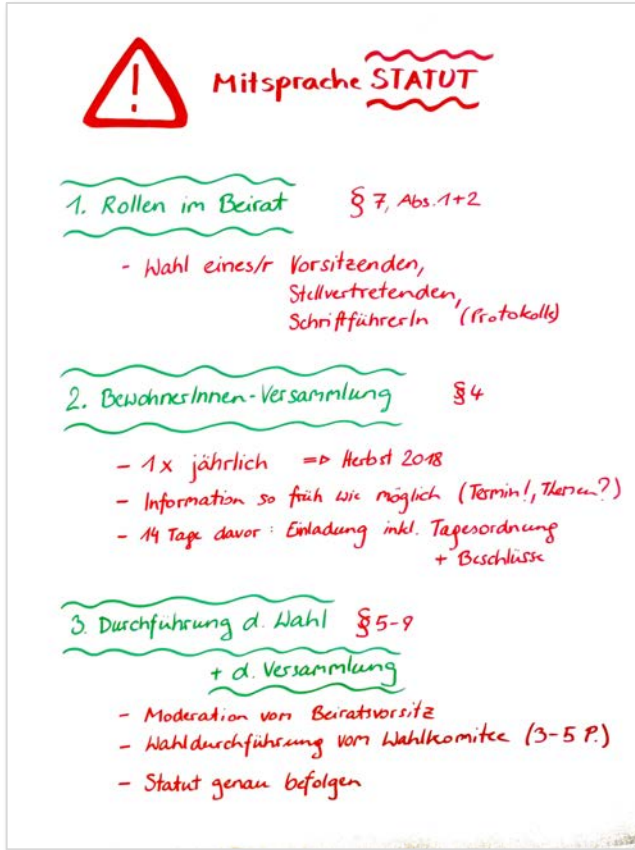 !
Mitsprache STATUT
1. Rollen im Beirat § 7, Abs. 1+2
- Wahl eines/r Vorsitzenden,
Stellvertretenden,
SchriftführerIn (Protokolle)
2. BewohnerInnen-Versammlung § 4
- 1x jährlich => Herbst 2018
- Information so früh wie möglich (Termin!, Themen?)
- 14 Tage davor: Einladung inkl. Tagesordnung
+ Beschlüsse
3. Durchführung d. Wahl § 5-9
+ d. Versammlung
- Moderation vom Beiratsvorsitz
- Wahldurchführung vom Wahlkomitee (3-5 P.)
- Statut genau befolgen